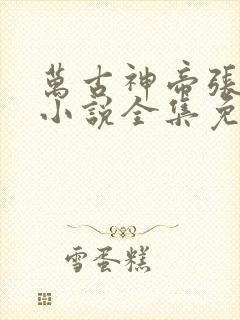 萬古神帝張
小說全集免
雪蛋糕